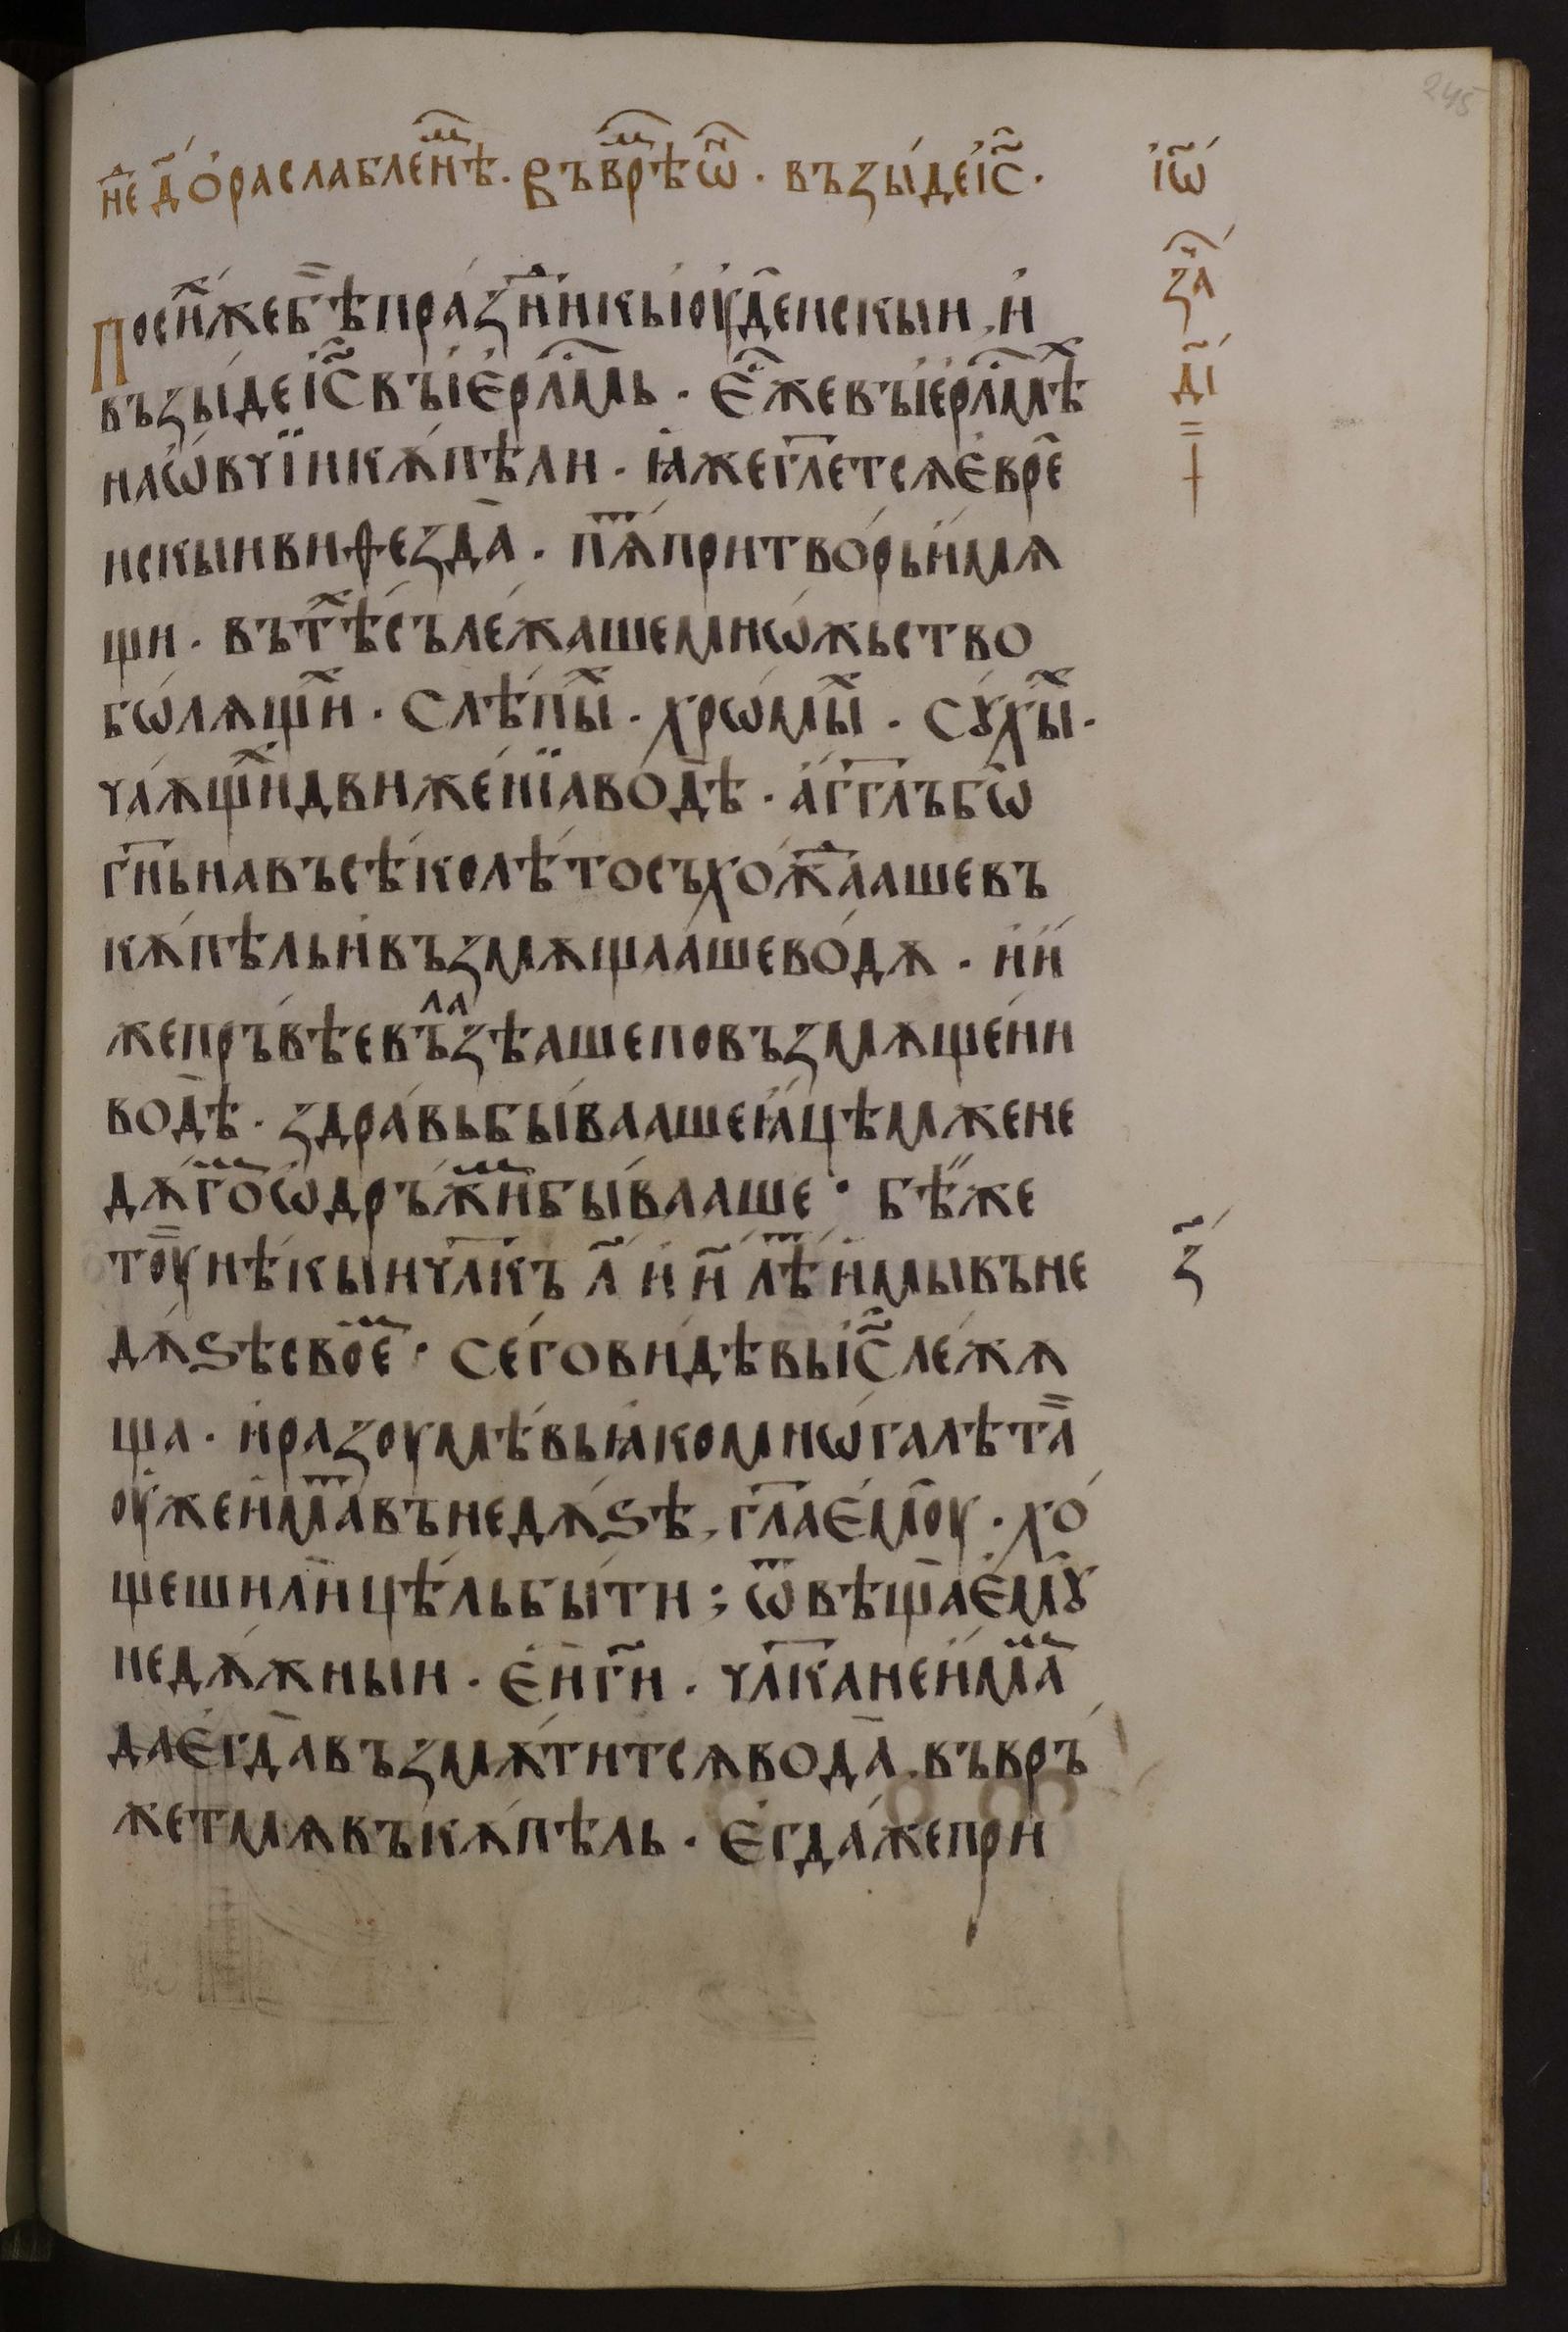 245
не҃д о҆раслабле́н҃ѣ · Въвр҃ѣѡ҃ · възы́деі҆с҃ ·
і҆ѡ҃
По си́хже бѣ̀ пра́зни҃кы і҆оу҆де́искыи , и҆
за҃
възы́деі҆с҃ въ і҆є҆рл҃мь · Є҆же въ і҆ерл҃мѣ
д҃і
на ѡ҆вчїи кѫ́пѣли · ꙗ҆же гл҃етсѧ є҆вре̑
искыи виѳезда̀ · пѧ҃ при тво́рь и҆мѧ
щи · въ тѣ҃хъ лежа́ше мнѡ́жьство
бѡ́лѧщи҃х · слѣпы҃х · хрѡ́мы҃х · сꙋ́хы҃х ·
ча́ѫщи҃х движе́нїа во́дѣ · а҆гг҃лъ бѡ
гн҃ь на въсѣ́ко лѣ́то съхожда́аше въ
кѫ́пѣль и҆ възмѫща́аше во́дѫ · и҆ и҆
же пръ́вѣе въла́зѣаше по възмѫще́ни
водѣ̀ · здра́вь бы́вааше ꙗ҆цѣм же не
дѫ́го҃м ѡ҆дръжи҃м бы́вааше · бѣ́ же
тоу̀ нѣ́кыи чл҃къ л҃ и҆ и҃ лѣ҃т и҆мы въ не
з҃
дѫ́ѕѣ свое҃м · Сего̀ ви́дѣвь і҆с҃ лежѫ́
ща · и҆ разоумѣ́вь ꙗ҆ко мнѡ́га лѣта̀
оу҆же и҆ма҃т въ недѫ́ѕѣ , гл҃а є҆моу̀ · хо́
щеши ли цѣ́ль бы́ти ; ѿвѣща̀ є҆мꙋ̀
недѫ́жныи · є҆и гн҃ · чл҃ка не и҆ма҃м
да є҆гда̀ възмѫ́титсѧ вода̀ · въвръ́
жет мѧ въ кѫ́пѣль · є҆гда́ же при